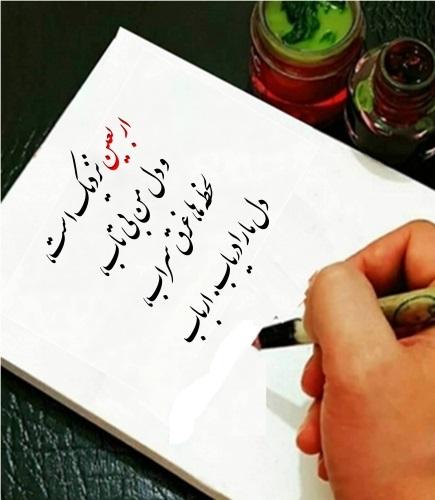 اربعین نزدیک است،
و دل من بی تاب،
لحظه ها، غرق سراب،
دل ما را دریاب، ارباب